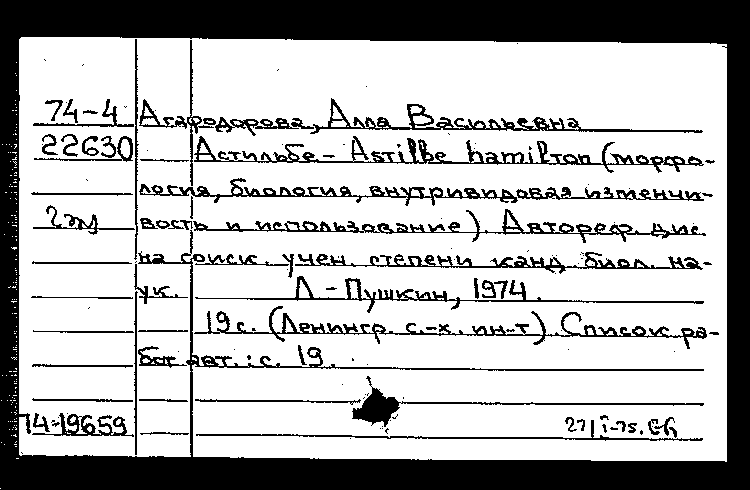 74-4 Агафодорова, Алла Васильевна
22630 Астильбе - Astilbe hamilton (морфо-
логия, биология, внутривидовая изменчи-
вость и использование). Автореф. дис.
на соиск. учен. степени канд. биол. на-
ук. Л - Пушкин, 1974.
19 с. (Ленингр. с.-х. ин-т). Список ра-
бот авт.: с. 19.
74-19659